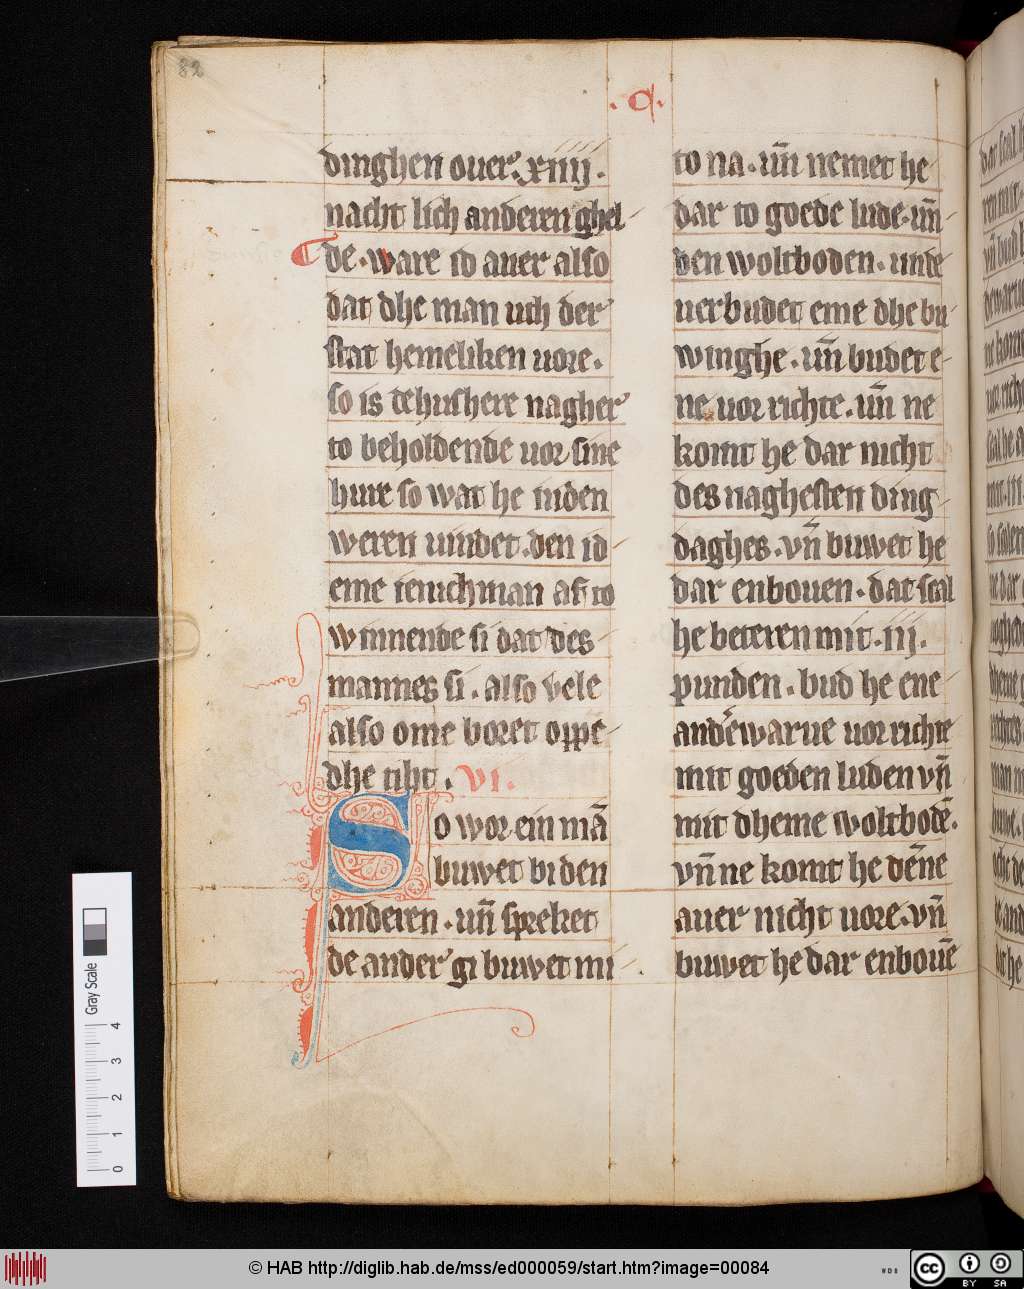 82
.q.
dinghen ouer. xiiij.
nacht lich anderen ghel
de. ware id auer also
dat dhe man uth der
stat hemeliken uore.
so is dehushere nagher
to beholdende uor sine
hure so wat he inden
weren uindet. den id
eme ienichman af to
winnende si dat des
mannes si. also vele
also ome boret oppe
dhe tiht. VI.
So wor ein mā
buwet bi den
anderen. un̄ spreket
de ander gi buwet mi
to na. un̄ nemet he
dar to goede lude. un̄
den woltboden. unde
uerbudet eme dhe bu
winghe. un̄ budet e
ne uor richte. un̄ ne
komt he dar nicht
des naghesten ding
daghes. vn̄ buwet he
dar enbouen. dat scal
he beteren mit. iij.
punden. bud he ene
anděwarue uor richte
mit goeden luden vn̄
mit dheme woltbodē.
vn̄ ne komt he dēne
auer nicht uore. vn̄
buwet he dar enbouē
Gray Scale
0 1 2 3 4
© HAB http://diglib.hab.de/mss/ed000059/start.htm?image=00084
cc BY SA